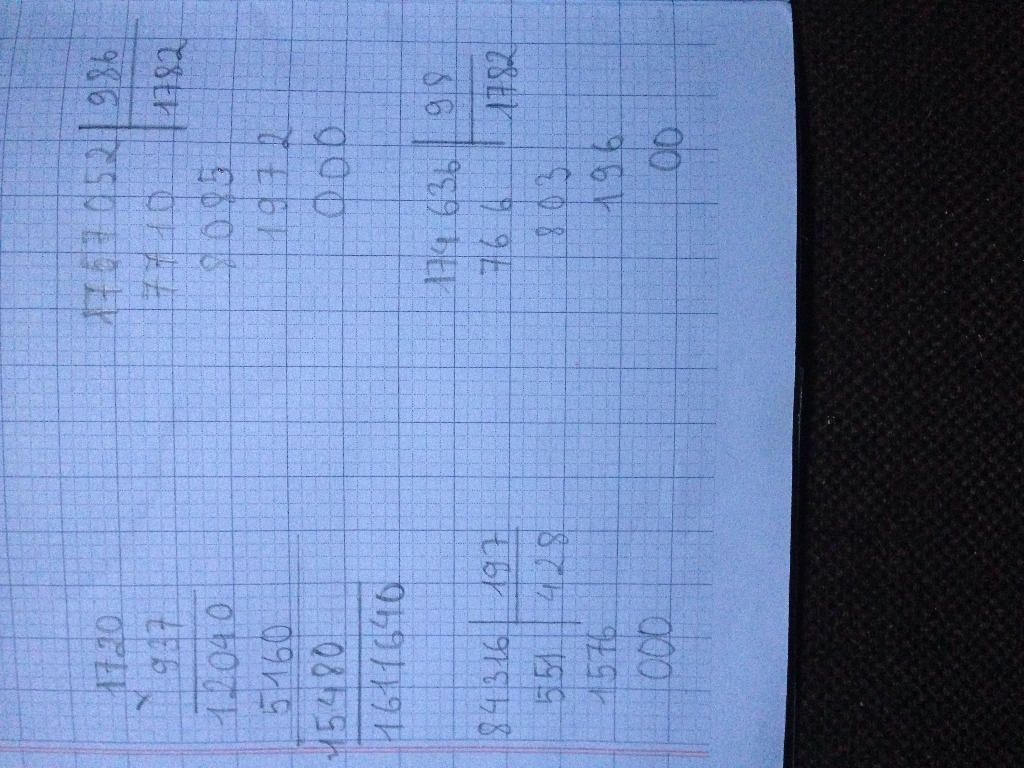 1720
× 937
12040
5160
15480
1611640
84316 | 197
551 | 428
1576
000
1757052 | 986
7710 | 1782
8085
1972
000
174636 | 98
766 | 1782
803
196
00